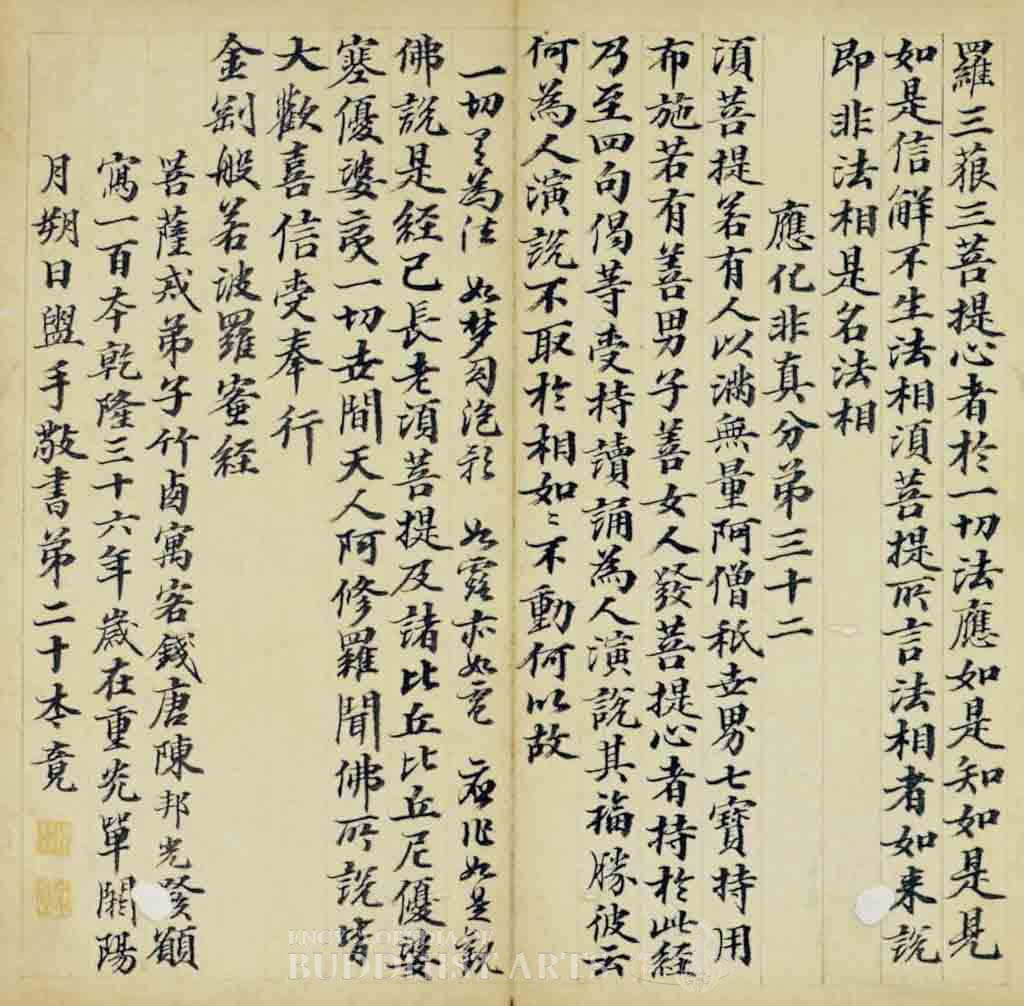 羅三藐三菩提心者於一切法應如是知如是見
如是信解不生法相須菩提所言法相者如来說
即非法相是名法相
應化非真分弟三十二
須菩提若有人以滿無量阿僧祇世界七寶持用
布施若有善男子善女人發菩提心者持於此経
乃至四句偈等受持讀誦為人演說其福勝彼云
何為人演說不取於相如〻不動何以故
一切有為法 如梦幻泡影 如露亦如電 應作如是觀
佛說是経已長老須菩提及諸比丘比丘尼優婆
塞優婆夷一切世間天人阿修羅聞佛所說皆
大歡喜信受奉行
金剛般若波羅蜜経
菩薩戒弟子竹鹵寓客錢唐陳邦光發願
寫一百本乾隆三十六年歲在重光單閼陽
月朔日盥手敬書弟二十本竟
ENCYCLOPEDIA OF
BUDDHIST ARTS